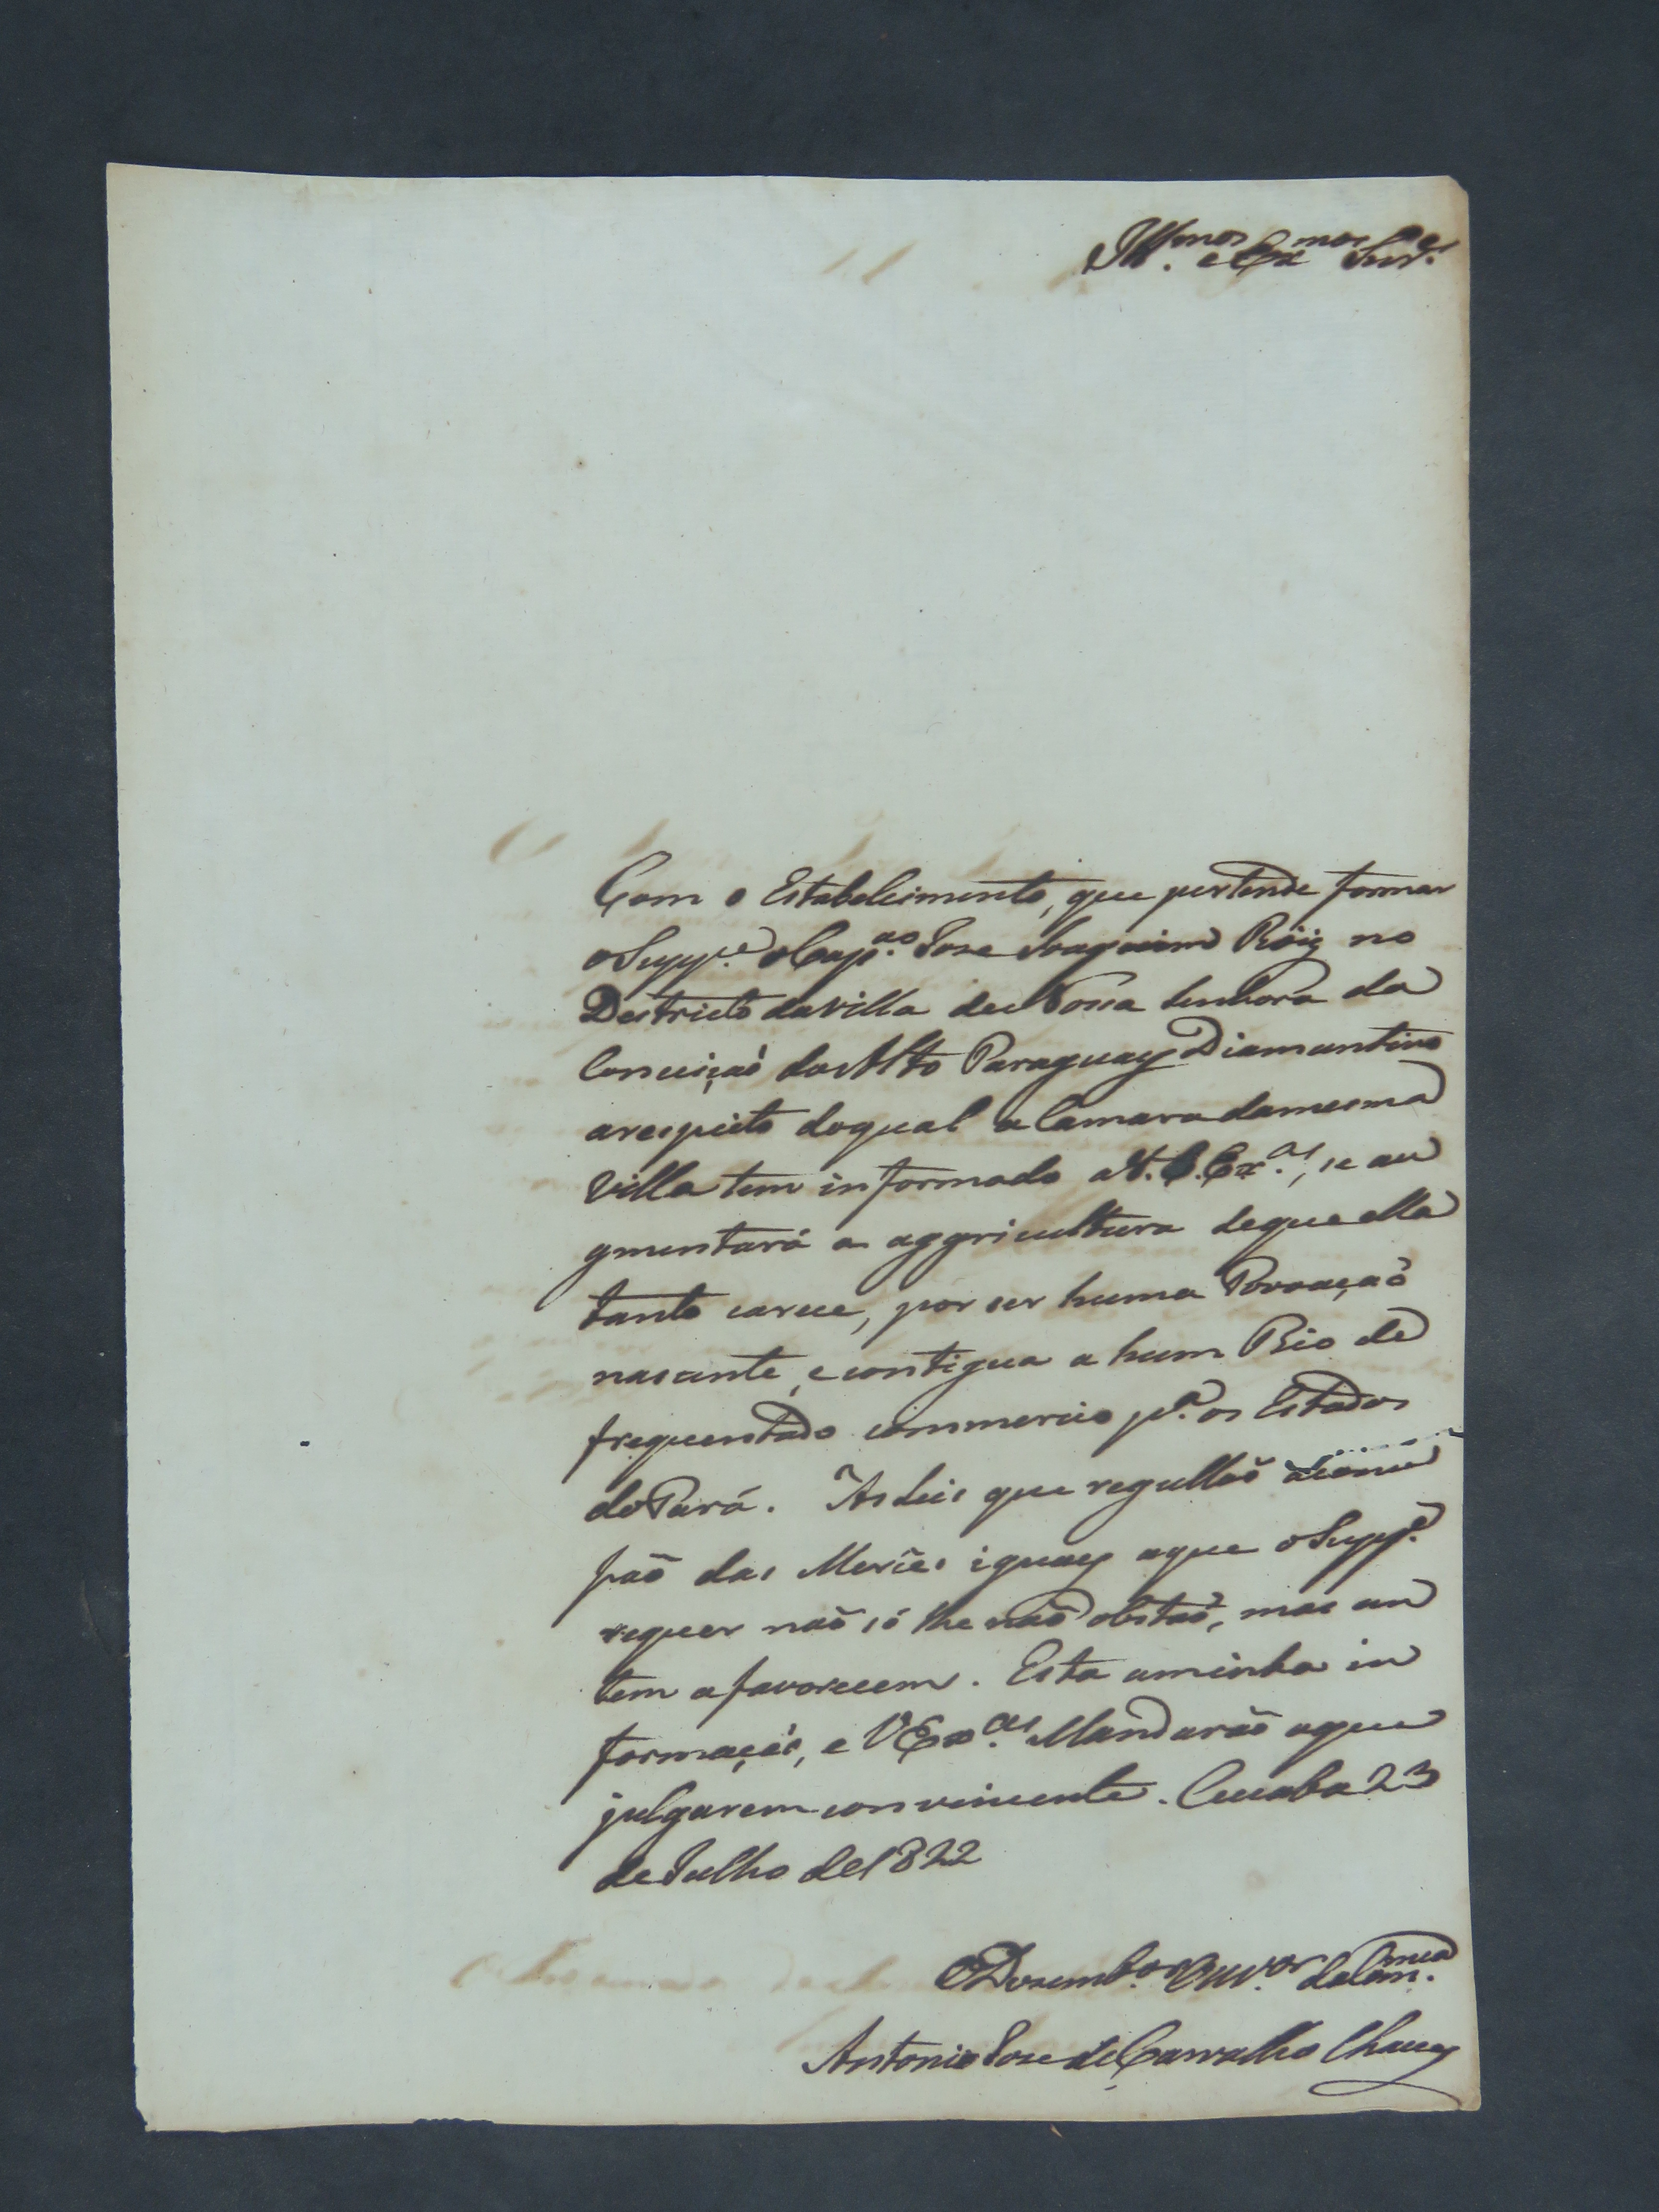 Ill.mos e Ex.mos Snr.es
Com o Estabelecimento, que pertende formar
o Supp.e o Cap.ao Joze Joaquim Róiz no
Destricto da Villa de Nossa Senhora da
Conceiçaõ do Alto Paraguay Diamantino
arespeito doqual a Camara damesma
Villa tem informado a V. Ex.as, se au
gmentará a aggricultura deque ella
tanto carece, por ser huma Povoaçaõ
nascente, e contigua a hum Rio de
frequentado commercio p.a os Estados
do Pará. As Leis que regullaõ aconce
saõ das Merces iguaes aque o Supp.e
requer naõ só lhe naõ obstaõ, mas an
tem a favorecem. Esta aminha in
formaçaõ, e V Ex.as Mandaraõ oque
julgarem conveniente. Cuiaba 23
de Julho de 1822
O Dezemb.or Ouv.or da Com.rca
Antonio Joze de Carvalho Chaves